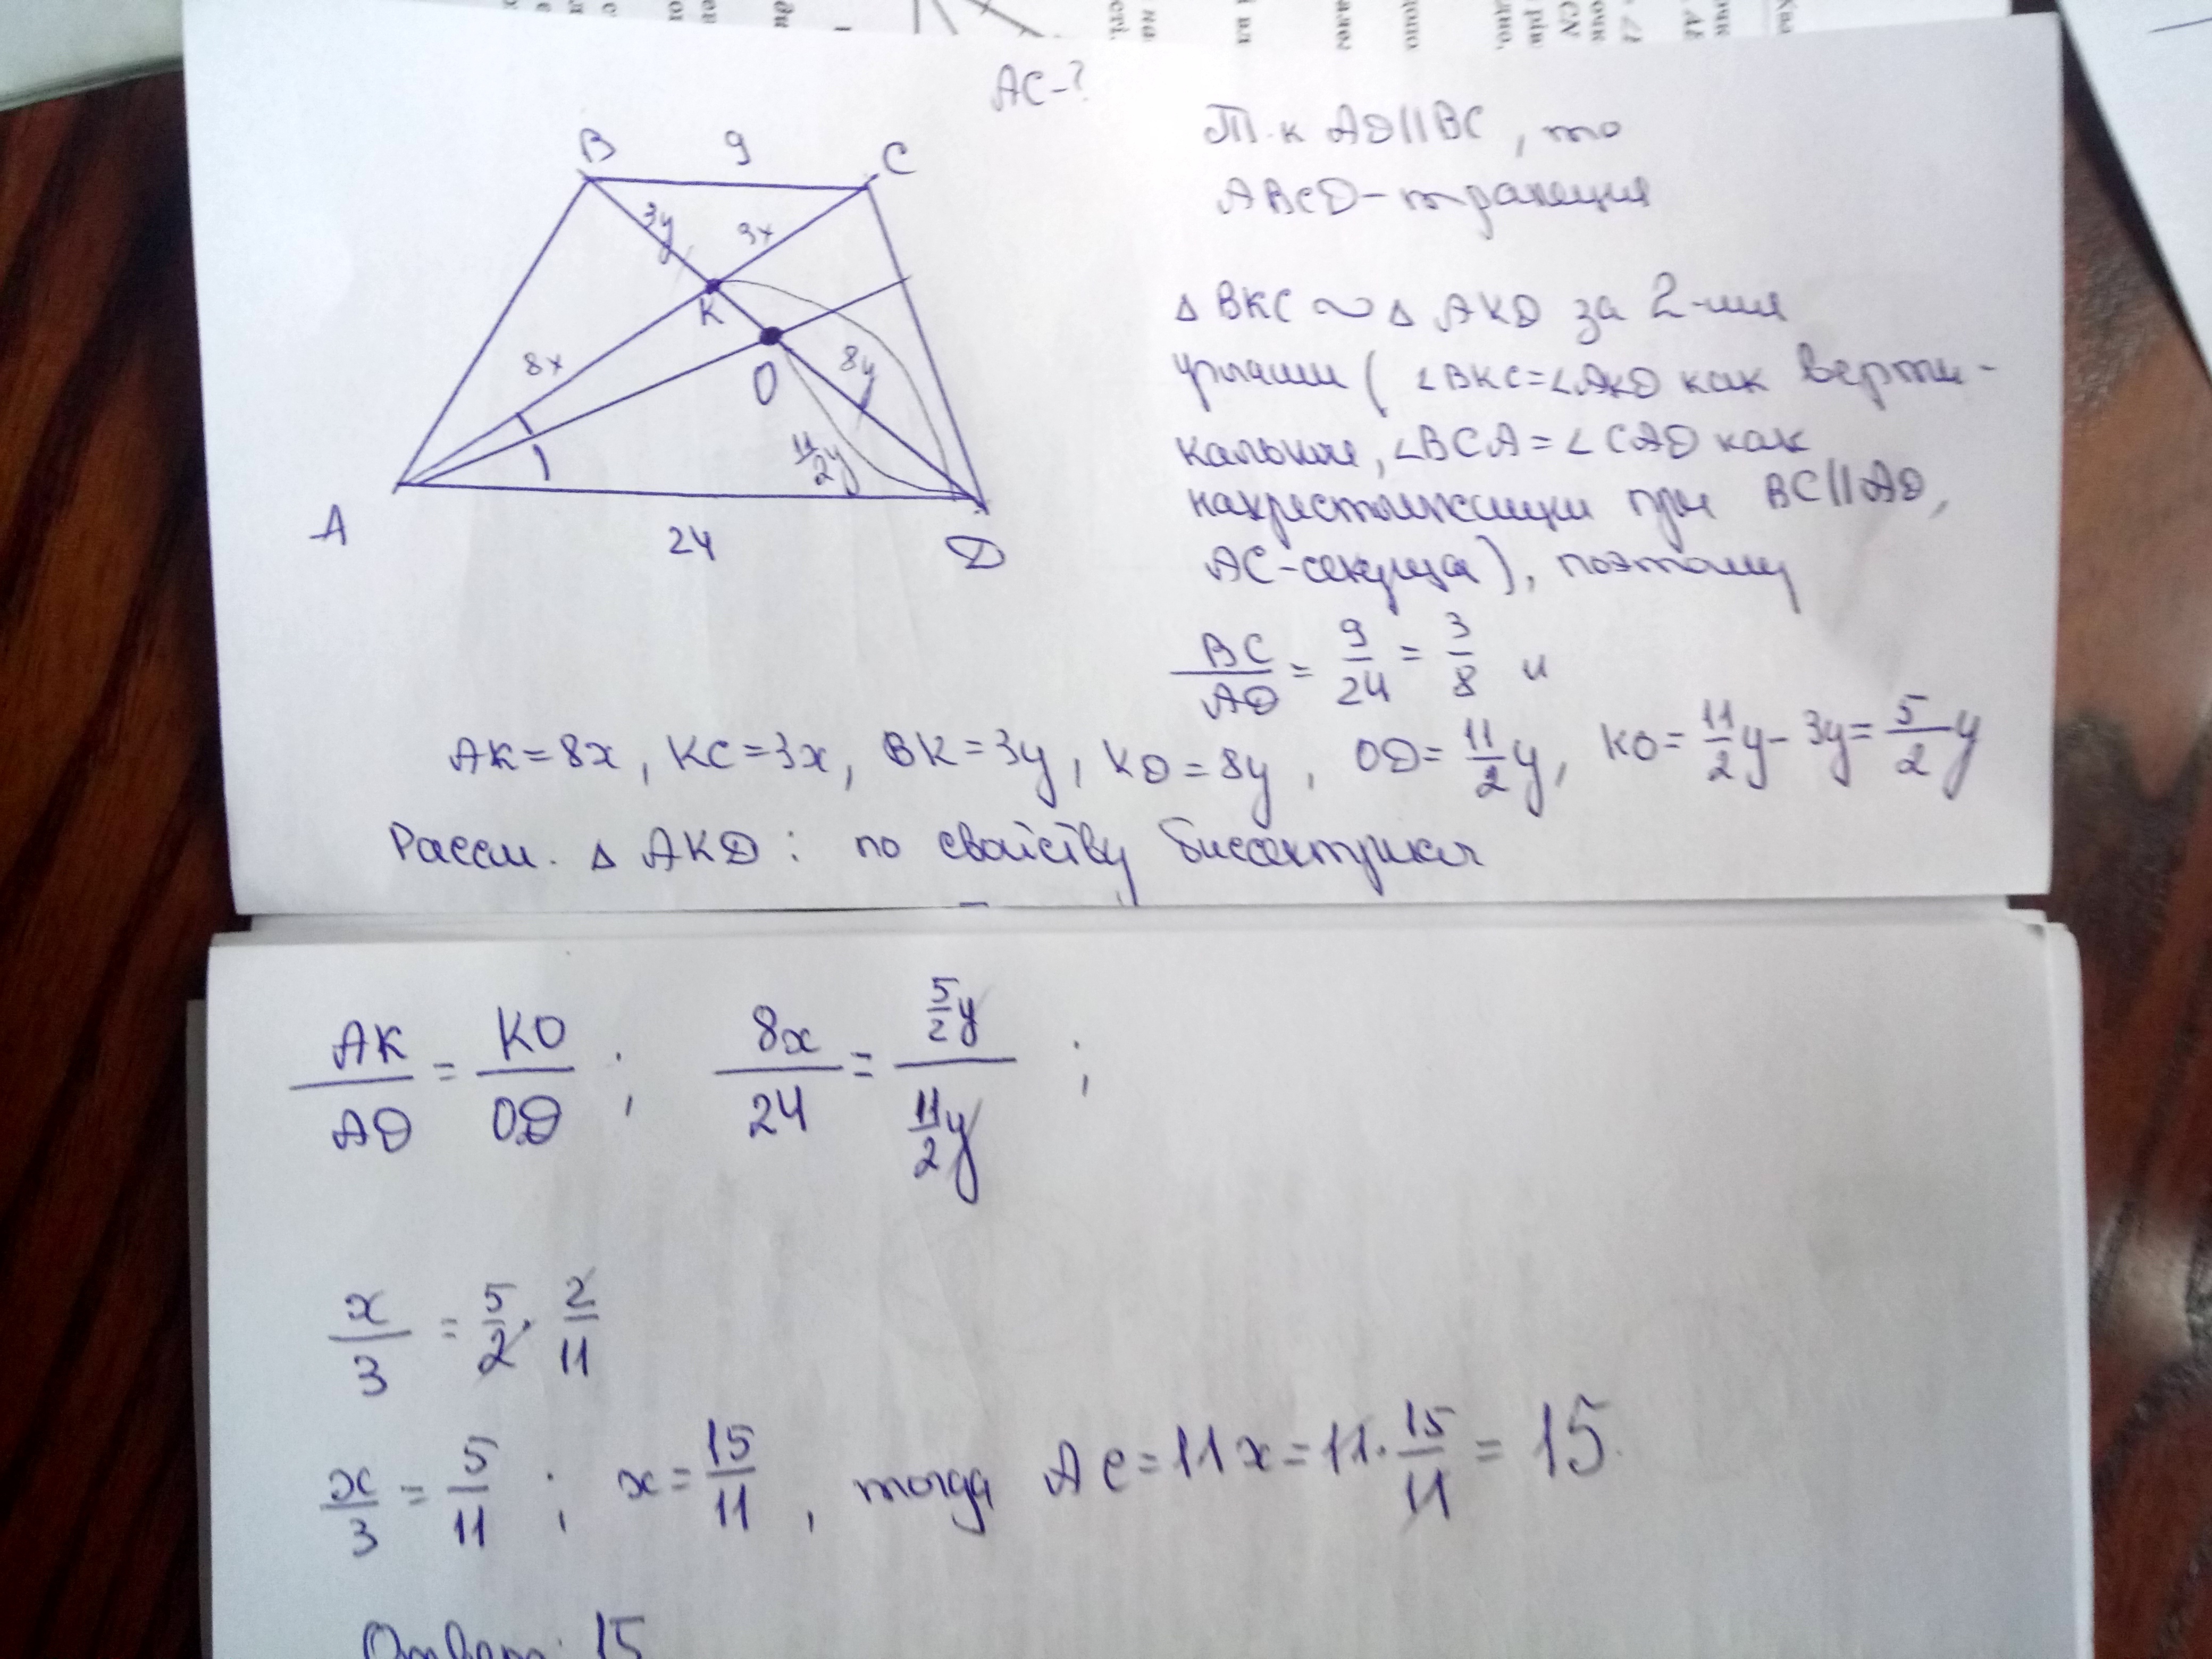 AC-?
B 9 C
3y 3x
K
8x O 8y
11/2 y
A 24 D
Т.к AD||BC, то
ABCD-трапеция
△BKC ~ △AKD за 2-мя
углами (∠BKC=∠AKD как верти-
кальные, ∠BCA=∠CAD как
накрестлежащие при BC||AD,
AC-секущая), поэтому
BC/AD = 9/24 = 3/8 и
AK=8x, KC=3x, BK=3y, KD=8y, OD=11/2 y, KO=11/2 y-3y=5/2 y
Рассм. △AKD: по свойству биссектрисы
AK/AD = KO/OD; 8x/24 = 5/2 y / 11/2 y;
x/3 = 5/2 · 2/11
x/3 = 5/11; x=15/11, тогда AC=11x=11·15/11=15.
Ответ: 15